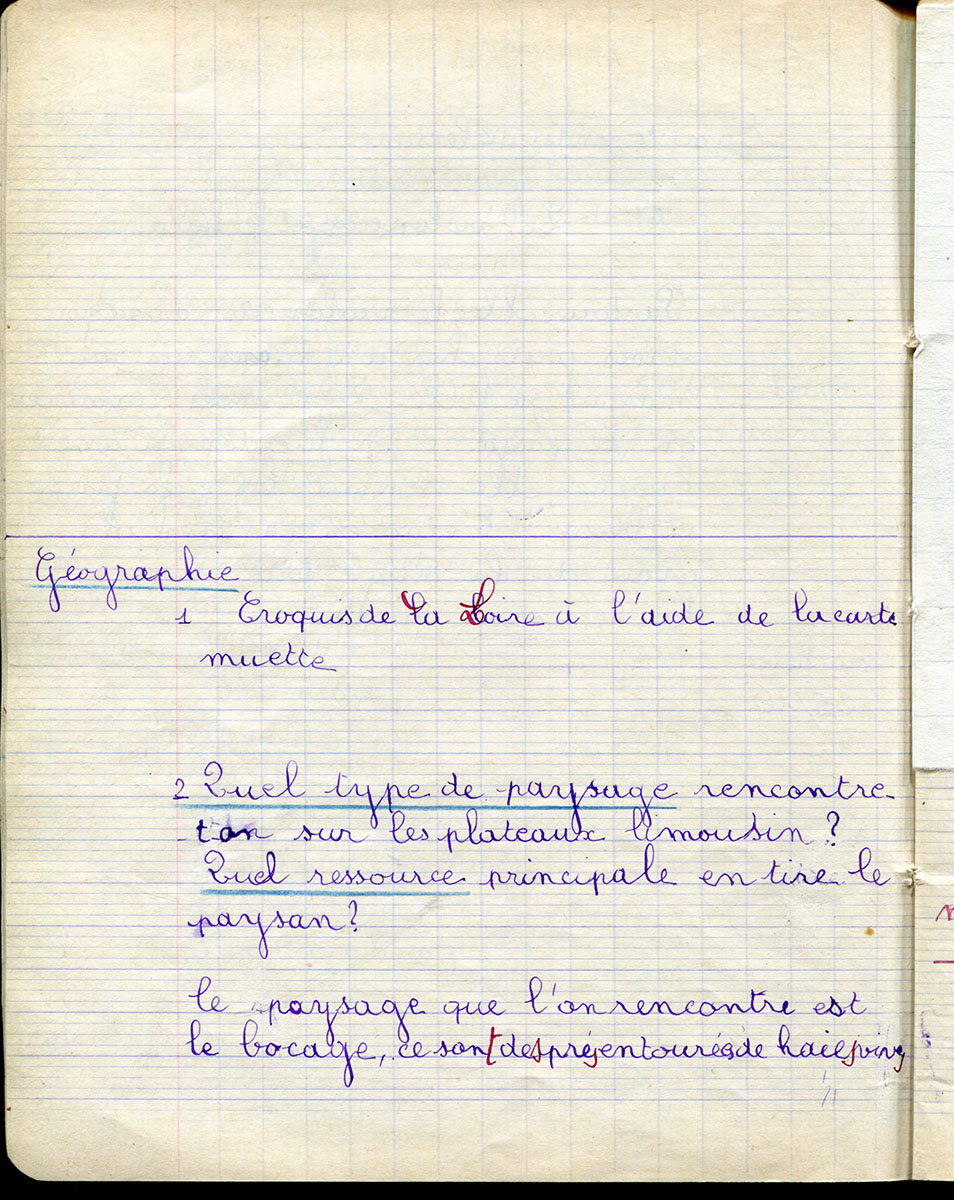 Géographie
1 Croquis de la Loire à l'aide de la carte
muette
2 Quel type de paysage rencontre-
-t on sur les plateaux limousin ?
Quel ressource principale en tire le
paysan ?
le paysage que l'on rencontre est
le bocage, ce sont des prés entourés de haies vives